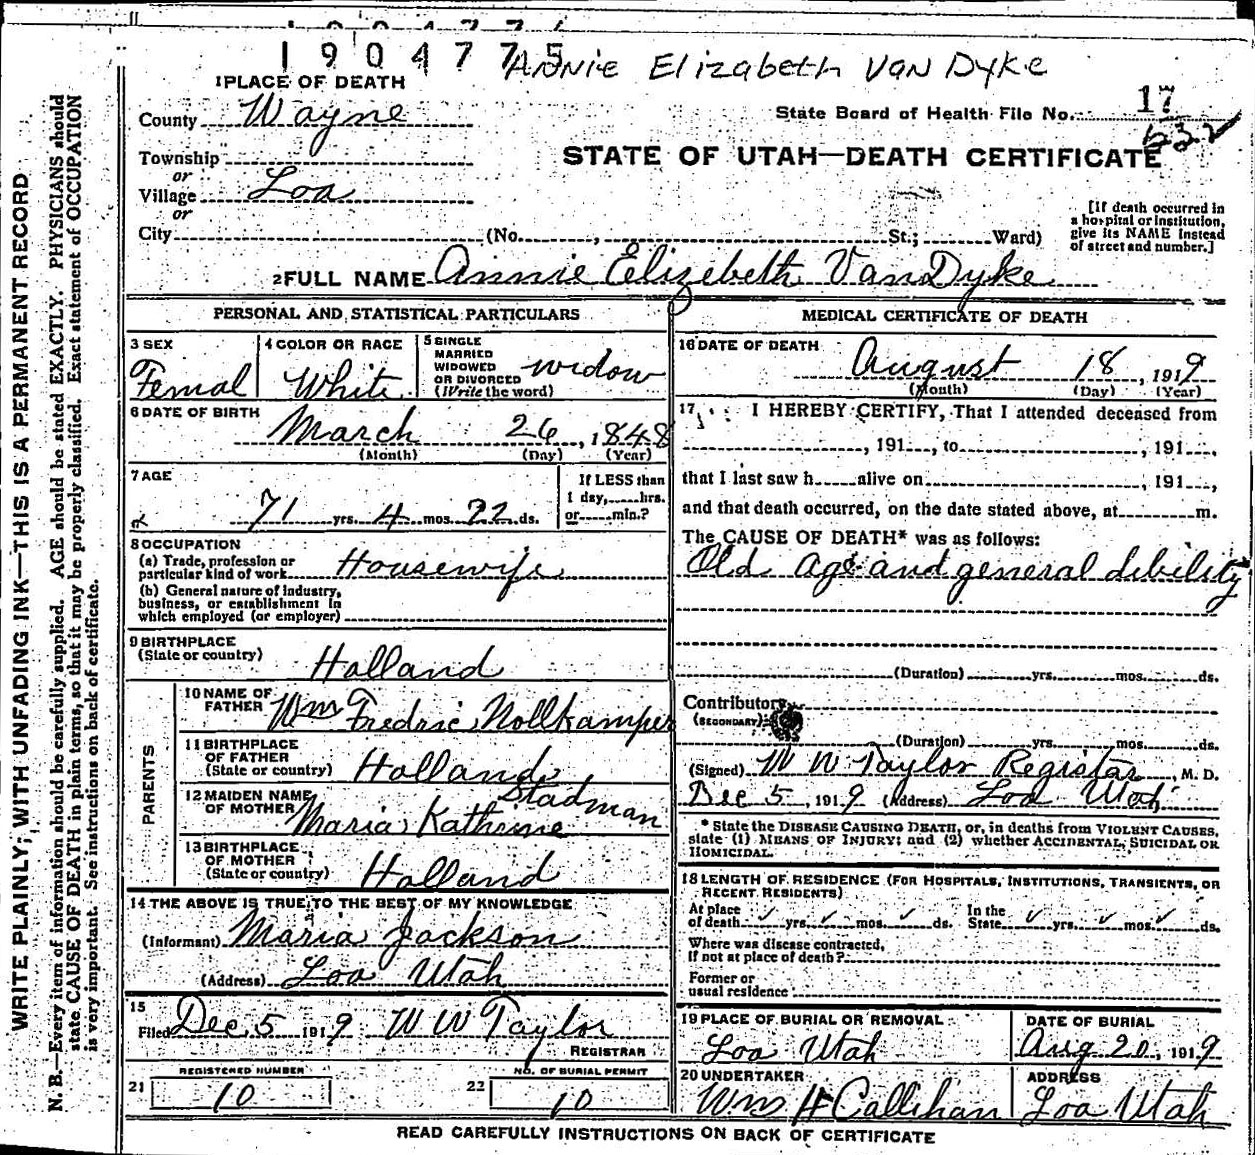 1904775 Annie Elizabeth Van Dyke
1 PLACE OF DEATH
County Wayne
State Board of Health File No. 17
632
Township
or
Village Loa
STATE OF UTAH—DEATH CERTIFICATE
or
City (No. , St.; Ward)
[If death occurred in
a hospital or institution,
give its NAME instead
of street and number.]
2 FULL NAME Annie Elizebeth VanDyke
PERSONAL AND STATISTICAL PARTICULARS
3 SEX
Femal
4 COLOR OR RACE
White
5 SINGLE
MARRIED
WIDOWED
OR DIVORCED
(Write the word)
widow
6 DATE OF BIRTH
March 26, 1848
(Month) (Day) (Year)
7 AGE
71 yrs. 4 mos. 22 ds.
If LESS than
1 day, hrs.
or min.?
8 OCCUPATION
(a) Trade, profession or
particular kind of work Housewife
(b) General nature of industry,
business, or establishment in
which employed (or employer)
9 BIRTHPLACE
(State or country)
Holland
PARENTS
10 NAME OF
FATHER Wm Fredric Nollkamper
11 BIRTHPLACE
OF FATHER
(State or country) Holland
12 MAIDEN NAME
OF MOTHER
Stadman
Maria Kathrine
13 BIRTHPLACE
OF MOTHER
(State or country) Holland
14 THE ABOVE IS TRUE TO THE BEST OF MY KNOWLEDGE
(Informant) Maria Jackson
(Address) Loa Utah
15
Filed Dec 5 1919 W W Taylor
REGISTRAR
REGISTERED NUMBER
21 10
NO. OF BURIAL PERMIT
22 10
MEDICAL CERTIFICATE OF DEATH
16 DATE OF DEATH
August 18, 1919
(Month) (Day) (Year)
17 I HEREBY CERTIFY, That I attended deceased from
, 191 , to , 191 ,
that I last saw h alive on , 191 ,
and that death occurred, on the date stated above, at m.
The CAUSE OF DEATH* was as follows:
Old age and general dibility
(Duration) yrs. mos. ds.
Contributory
(SECONDARY)
(Duration) yrs. mos. ds.
(Signed) W W Taylor Registar, M. D.
Dec 5, 1919 (Address) Loa Utah
* State the DISEASE CAUSING DEATH, or, in deaths from VIOLENT CAUSES,
state (1) MEANS OF INJURY; and (2) whether ACCIDENTAL, SUICIDAL OR
HOMICIDAL.
18 LENGTH OF RESIDENCE (FOR HOSPITALS, INSTITUTIONS, TRANSIENTS, OR
RECENT RESIDENTS)
At place
of death ✓ yrs. ✓ mos. ✓ ds.
In the
State ✓ yrs. ✓ mos. ✓ ds.
Where was disease contracted,
If not at place of death?
Former or
usual residence
19 PLACE OF BURIAL OR REMOVAL
Loa Utah
DATE OF BURIAL
Aug 20, 1919
20 UNDERTAKER
Wm H Callihan
ADDRESS
Loa Utah
READ CAREFULLY INSTRUCTIONS ON BACK OF CERTIFICATE
WRITE PLAINLY; WITH UNFADING INK—THIS IS A PERMANENT RECORD
N. B.—Every item of information should be carefully supplied. AGE should be stated EXACTLY. PHYSICIANS should
state CAUSE OF DEATH in plain terms, so that it may be properly classified. Exact statement of OCCUPATION
is very important. See instructions on back of certificate.